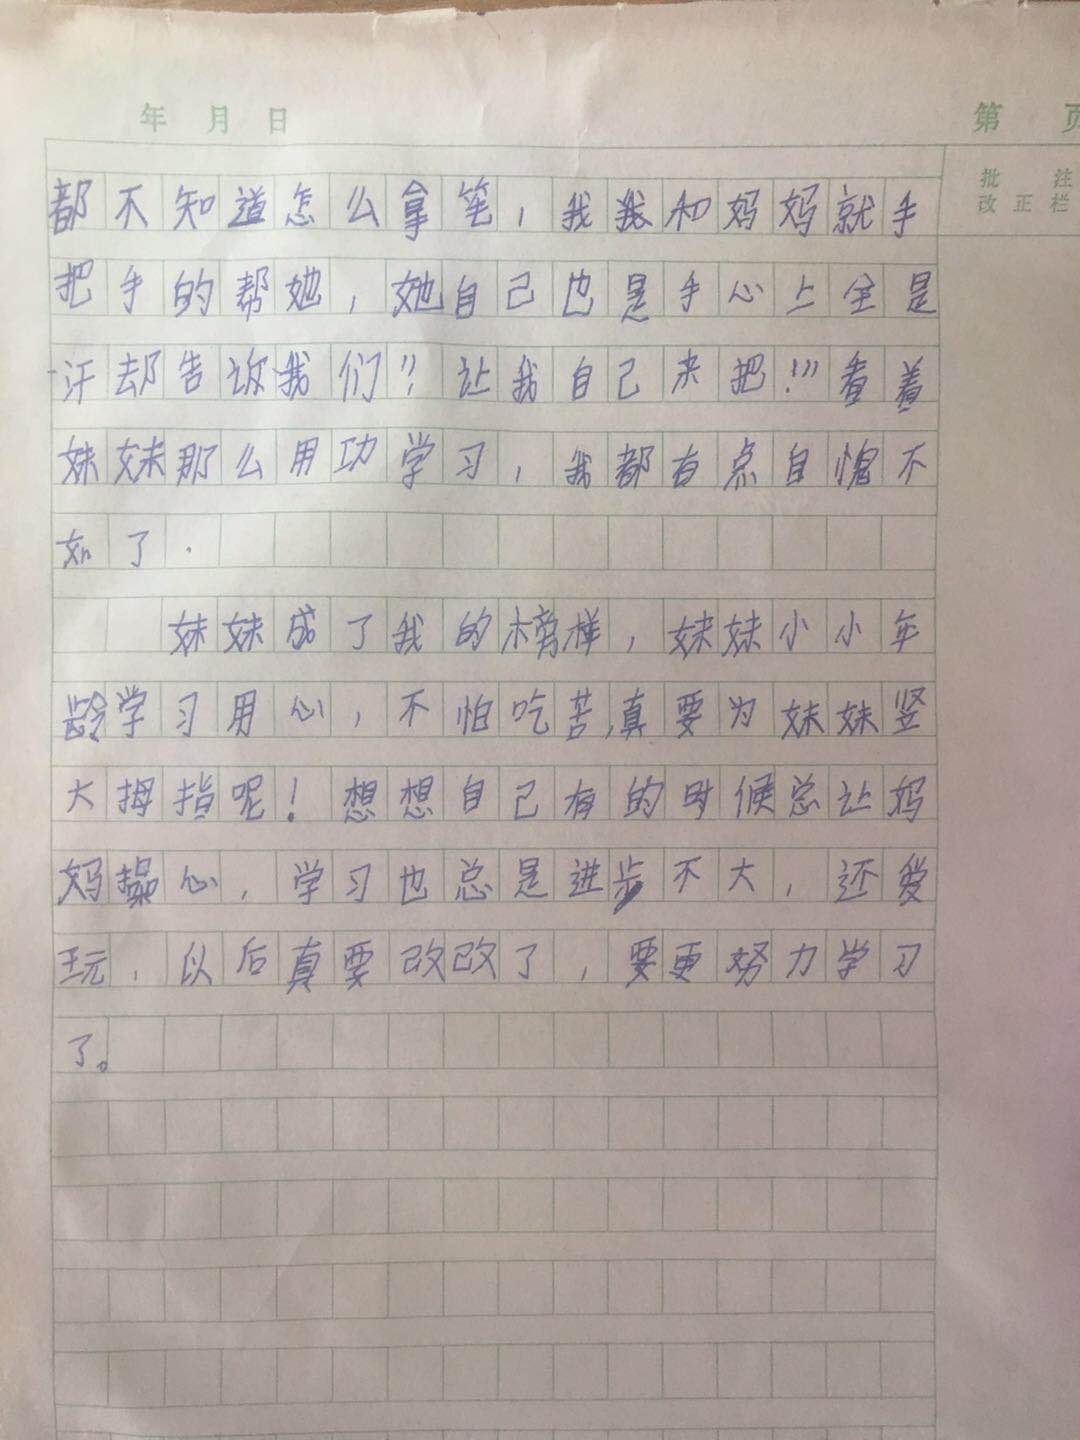 年 月 日
第 页
批 注
改 正 栏
都不知道怎么拿笔，我我和妈妈就手
把手的帮她，她自己也是手心上全是
汗却告诉我们“让我自己来把！”看着
妹妹那么用功学习，我都有点自愧不
如了．
妹妹成了我的榜样，妹妹小小年
龄学习用心，不怕吃苦，真要为妹妹竖
大拇指呢！想想自己有的时候总让妈
妈操心，学习也总是进步不大，还爱
玩，以后真要改改了，要更努力学习
了。